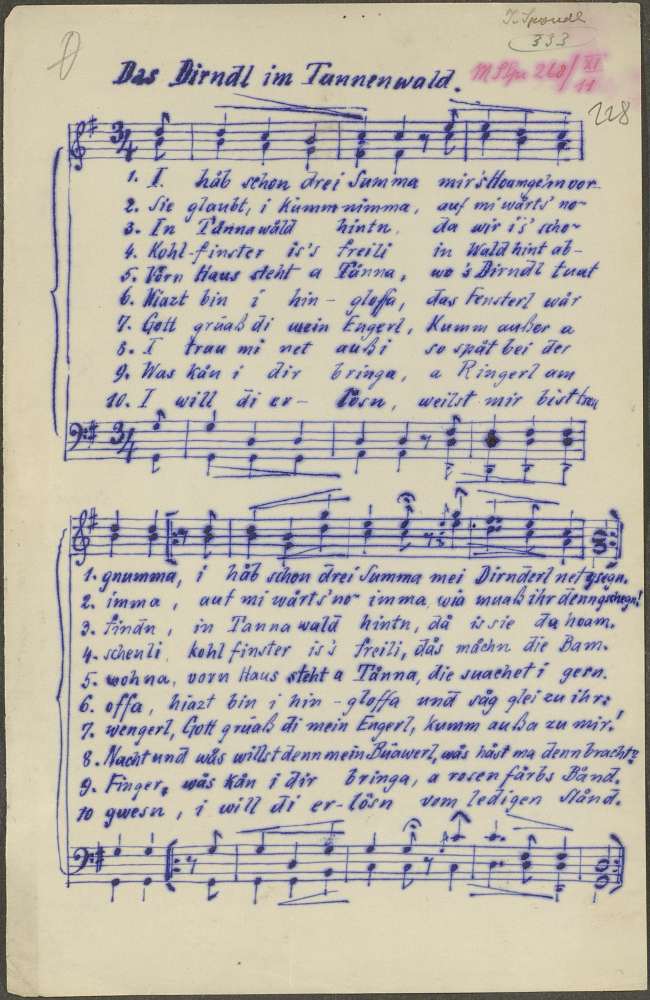 333
Das Dirndl im Tannenwald.
228
1. I håb schon drei Summa mir's Hoamgehn vor-
2. Sie glaubt, i kumm nimma, auf mi wårt's no-
3. In Tånnawåld hintn, da wir i's' scho-
4. Kohl-finster is's freili in Wald hint ab-
5. Vorn Haus steht a Tånna, wo's Dirndl tuat
6. Hiazt bin i hin-gloffa, das Fensterl wår
7. Gott grüaß di mein Engerl, Kumm außer a
8. I trau mi net außi so spåt bei der
9. Was kån i dir bringa, a Ringerl am
10. I will di er- lösn, weilst mir bist trau
1. gnumma, i håb schon drei Summa mei Dirnderl net gsegn.
2. imma, auf mi wårts' no imma, wia muaß ihr denn gschegn!
3. findn, in Tanna wald hintn, då is sie dahoam.
4. scheuli, kohlfinster is's freili, dås måchn die Bam.
5. wohna, vorn Haus steht a Tånna, die suachet i gern.
6. offa, hiazt bin i hin-gloffa und såg glei zu ihr:
7. wengerl, Gott grüaß di mein Engerl, kumm außa zu mir!
8. Nacht und wås willst denn mein Büawerl, wås håst ma denn bracht?
9. Finger, wås kån i dir bringa, a rosenfårbs Bånd.
10 gwesn, i will di er-lösn vom ledigen Stånd.